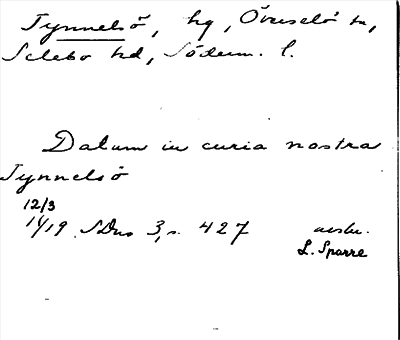 Tynnelsö, hg, Överselö sn,
Selebo hd, Söderm. l.
Datum in curia nostra
Tynnelsö
12/3
1419 SDns 3, s. 427
L. Sparre